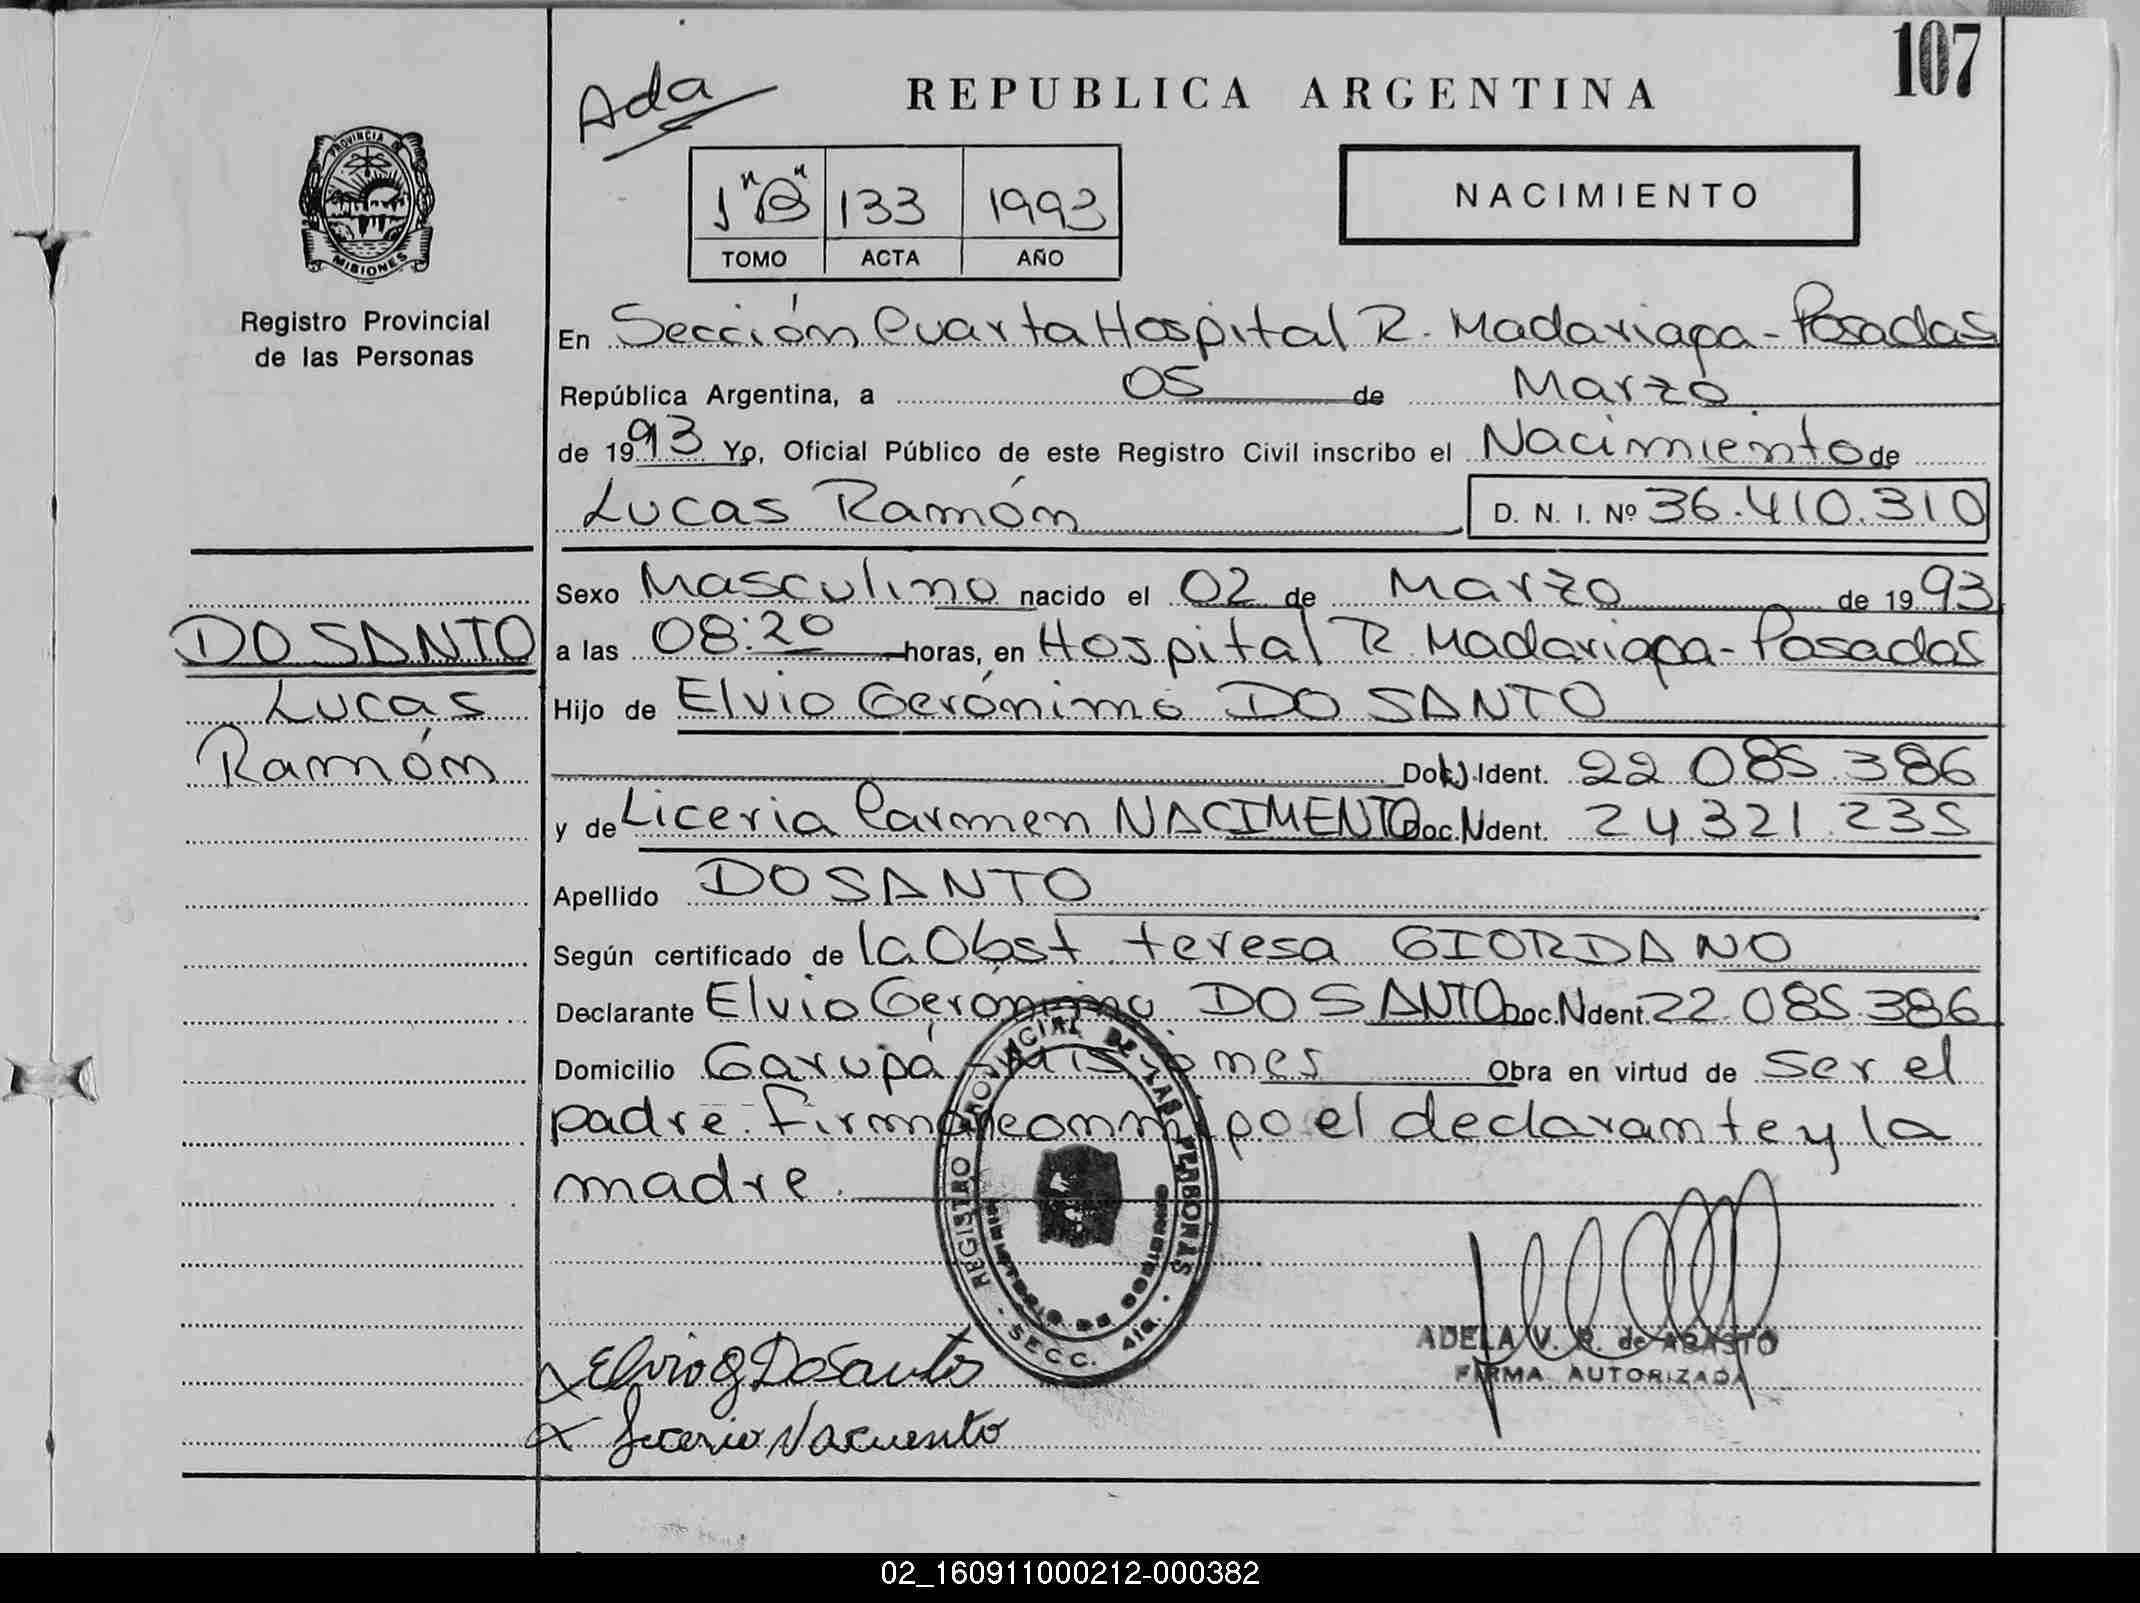 107
Ada
REPUBLICA ARGENTINA
PROVINCIA DE
MISIONES
1 "B" 133 1993
TOMO ACTA AÑO
NACIMIENTO
Registro Provincial
de las Personas
En Sección Cuarta Hospital R. Madariaga - Posadas
República Argentina, a 05 de Marzo
de 1993 Yo, Oficial Público de este Registro Civil inscribo el Nacimiento de
Lucas Ramón D. N. I. Nº 36.410.310
Sexo Masculino nacido el 02 de Marzo de 1993
DO SANTO
Lucas
Ramón
a las 08:20 horas, en Hospital R. Madariaga - Posadas
Hijo de Elvio Gerónimo DO SANTO
Doc. Ident. 22.085.386
y de Liceria Carmen NACIMENTO Doc. Ident. 24.321.235
Apellido DO SANTO
Según certificado de la Obst. teresa GIORDANO
Declarante Elvio Gerónimo DO SANTO Doc. Ident. 22.085.386
Domicilio Garupá - Misiones Obra en virtud de ser el
padre. firman conmigo el declarante y la
madre.
REGISTRO PROVINCIAL DE LAS PERSONAS
MINISTERIO DE GOBIERNO
SECC. 4ta.
ADELA V. R. de ABASTO
FIRMA AUTORIZADA
x Elvio G DoSanto
x Liceria Nacimento
02_160911000212-000382